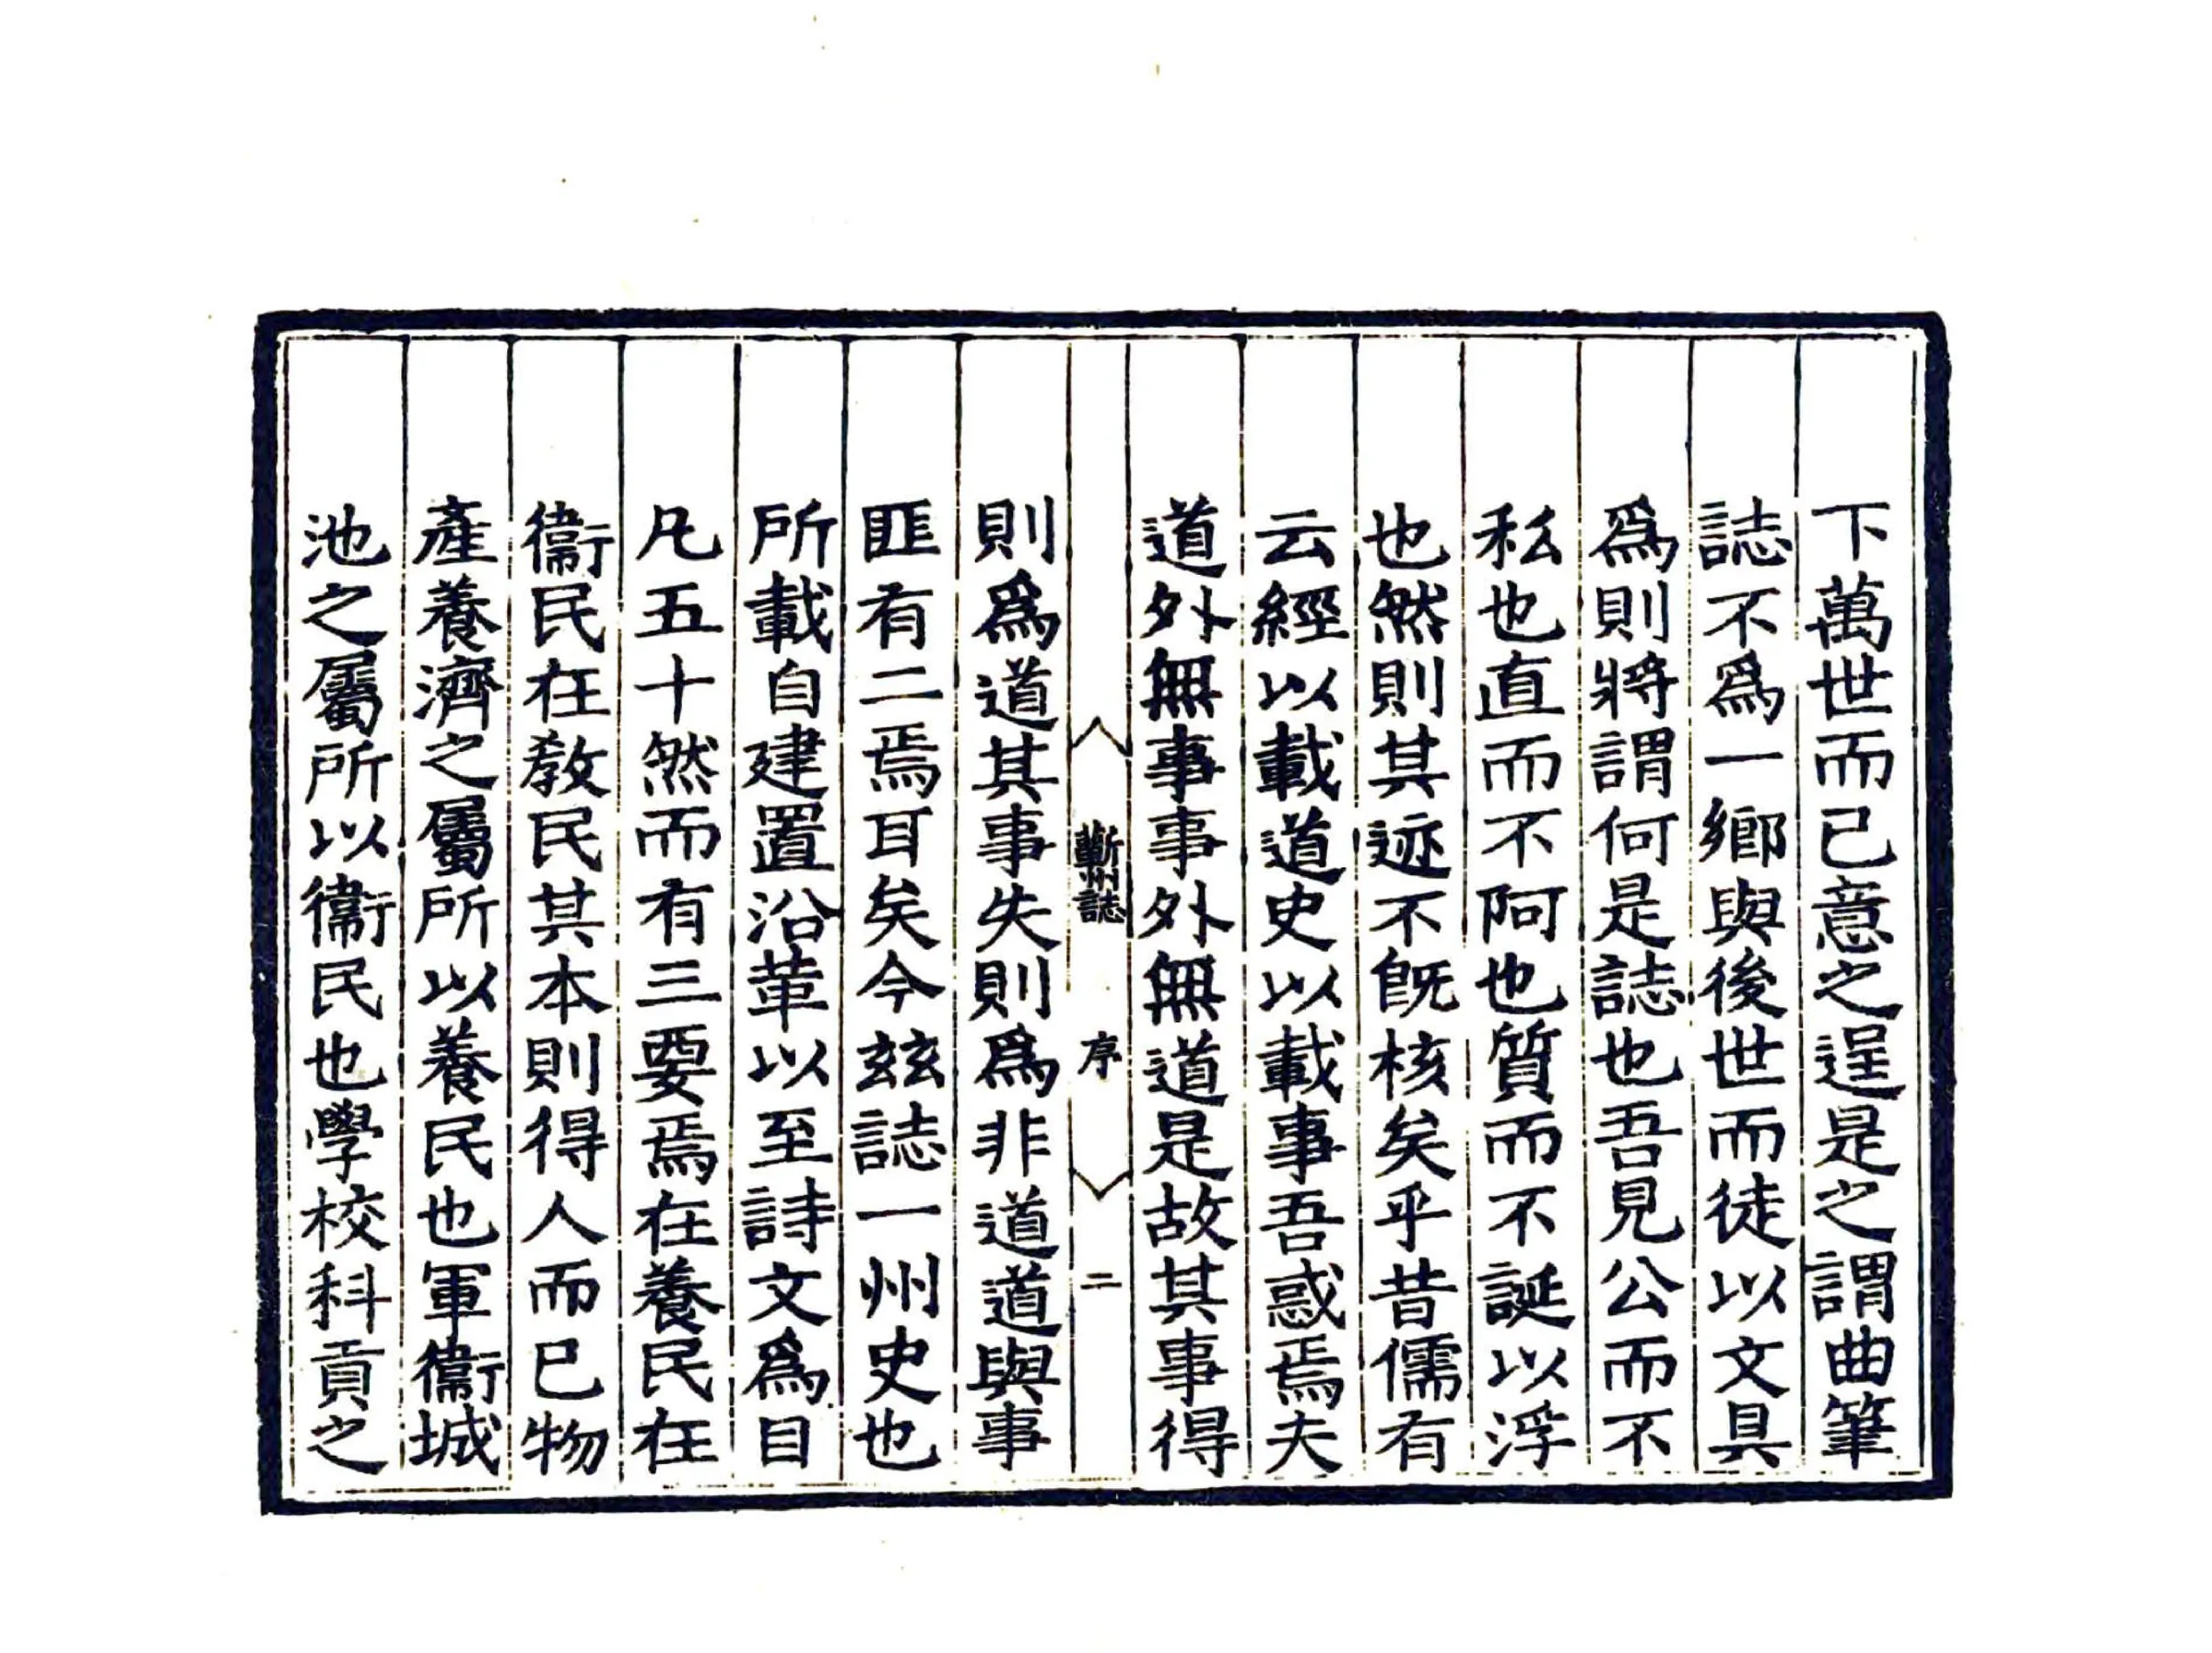 下萬世而己意之逞是之謂曲筆
誌不爲一鄉與後世而徒以文具
爲則將謂何是誌也吾見公而不
私也直而不阿也質而不誕以浮
也然則其迹不旣核矣乎昔儒有
云經以載道史以載事吾惑焉夫
道外無事事外無道是故其事得
蘄州誌
序
二
則爲道其事失則爲非道道與事
匪有二焉耳矣今玆誌一州史也
所載自建置沿革以至詩文爲目
凡五十然而有三要焉在養民在
衞民在敎民其本則得人而已物
產養濟之屬所以養民也軍衞城
池之屬所以衞民也學校科貢之